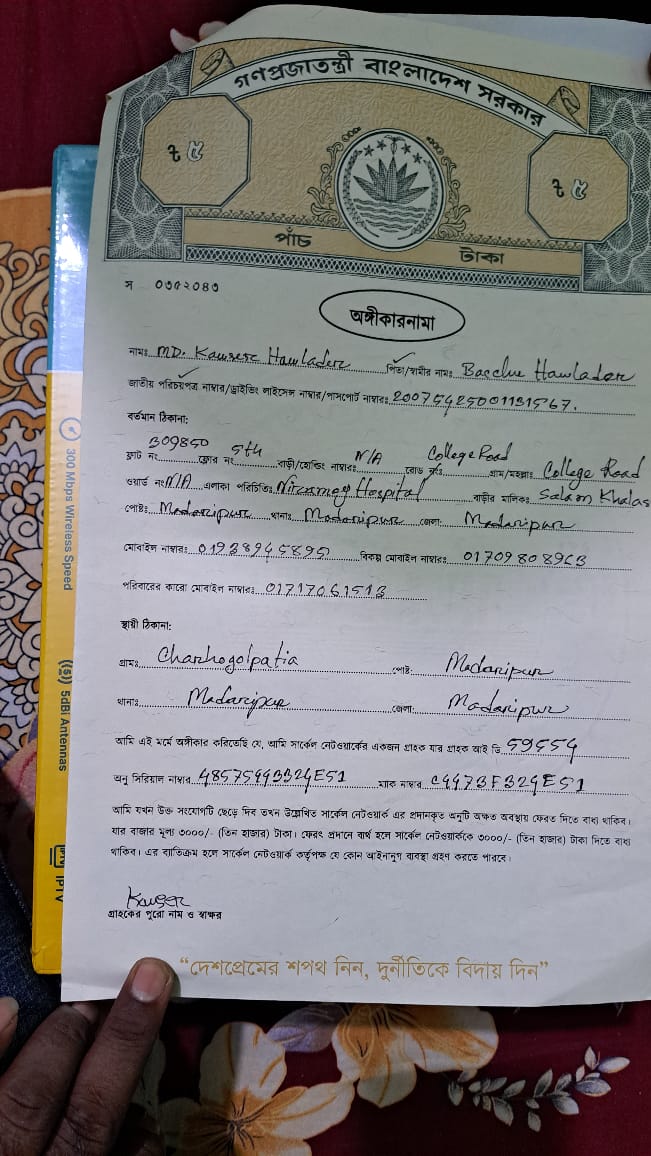 গণপ্রজাতন্ত্রী বাংলাদেশ সরকার
৳ ৫
৳ ৫
পাঁচ টাকা
স ০৩৫২০৪৩
অঙ্গীকারনামা
নামঃ MD. Kauser Hawlader পিতা/স্বামীর নামঃ Bacchu Hawlader
জাতীয় পরিচয়পত্র নাম্বার/ড্রাইভিং লাইসেন্স নাম্বার/পাসপোর্ট নাম্বারঃ 20075425001131567.
বর্তমান ঠিকানা:
ফ্লাট নং 309850 ফ্লোর নং 5th বাড়ী/হোল্ডিং নাম্বারঃ N/A রোড নংঃ College Road গ্রাম/মহল্লাঃ College Road
ওয়ার্ড নংঃ N/A এলাকা পরিচিতিঃ Niramoy Hospital বাড়ীর মালিকঃ Salam Khalas
পোষ্টঃ Madaripur থানাঃ Madaripur জেলাঃ Madaripur
মোবাইল নাম্বারঃ বিকল্প মোবাইল নাম্বারঃ
পরিবারের কারো মোবাইল নাম্বারঃ 01717061513
স্থায়ী ঠিকানা:
গ্রামঃ Charhogolpatia পোষ্ট: Madaripur
থানাঃ Madaripur জেলা: Madaripur
আমি এই মর্মে অঙ্গীকার করিতেছি যে, আমি সার্কেল নেটওয়ার্কের একজন গ্রাহক যার গ্রাহক আই ডি
অনু সিরিয়াল নাম্বার ম্যাক নাম্বার
আমি যখন উক্ত সংযোগটি ছেড়ে দিব তখন উল্লেখিত সার্কেল নেটওয়ার্ক এর প্রদানকৃত অনুটি অক্ষত অবস্থায় ফেরত দিতে বাধ্য থাকিব।
যার বাজার মূল্য ৩০০০/- (তিন হাজার) টাকা। ফেরৎ প্রদানে ব্যর্থ হলে সার্কেল নেটওয়ার্ককে ৩০০০/- (তিন হাজার) টাকা দিতে বাধ্য
থাকিব। এর ব্যতিক্রম হলে সার্কেল নেটওয়ার্ক কর্তৃপক্ষ যে কোন আইনানুগ ব্যবস্থা গ্রহণ করতে পারবে।
Kauser
গ্রাহকের পুরো নাম ও স্বাক্ষর
“দেশপ্রেমের শপথ নিন, দুর্নীতিকে বিদায় দিন”
300 Mbps Wireless Speed
5dBi Antennas
IPTV